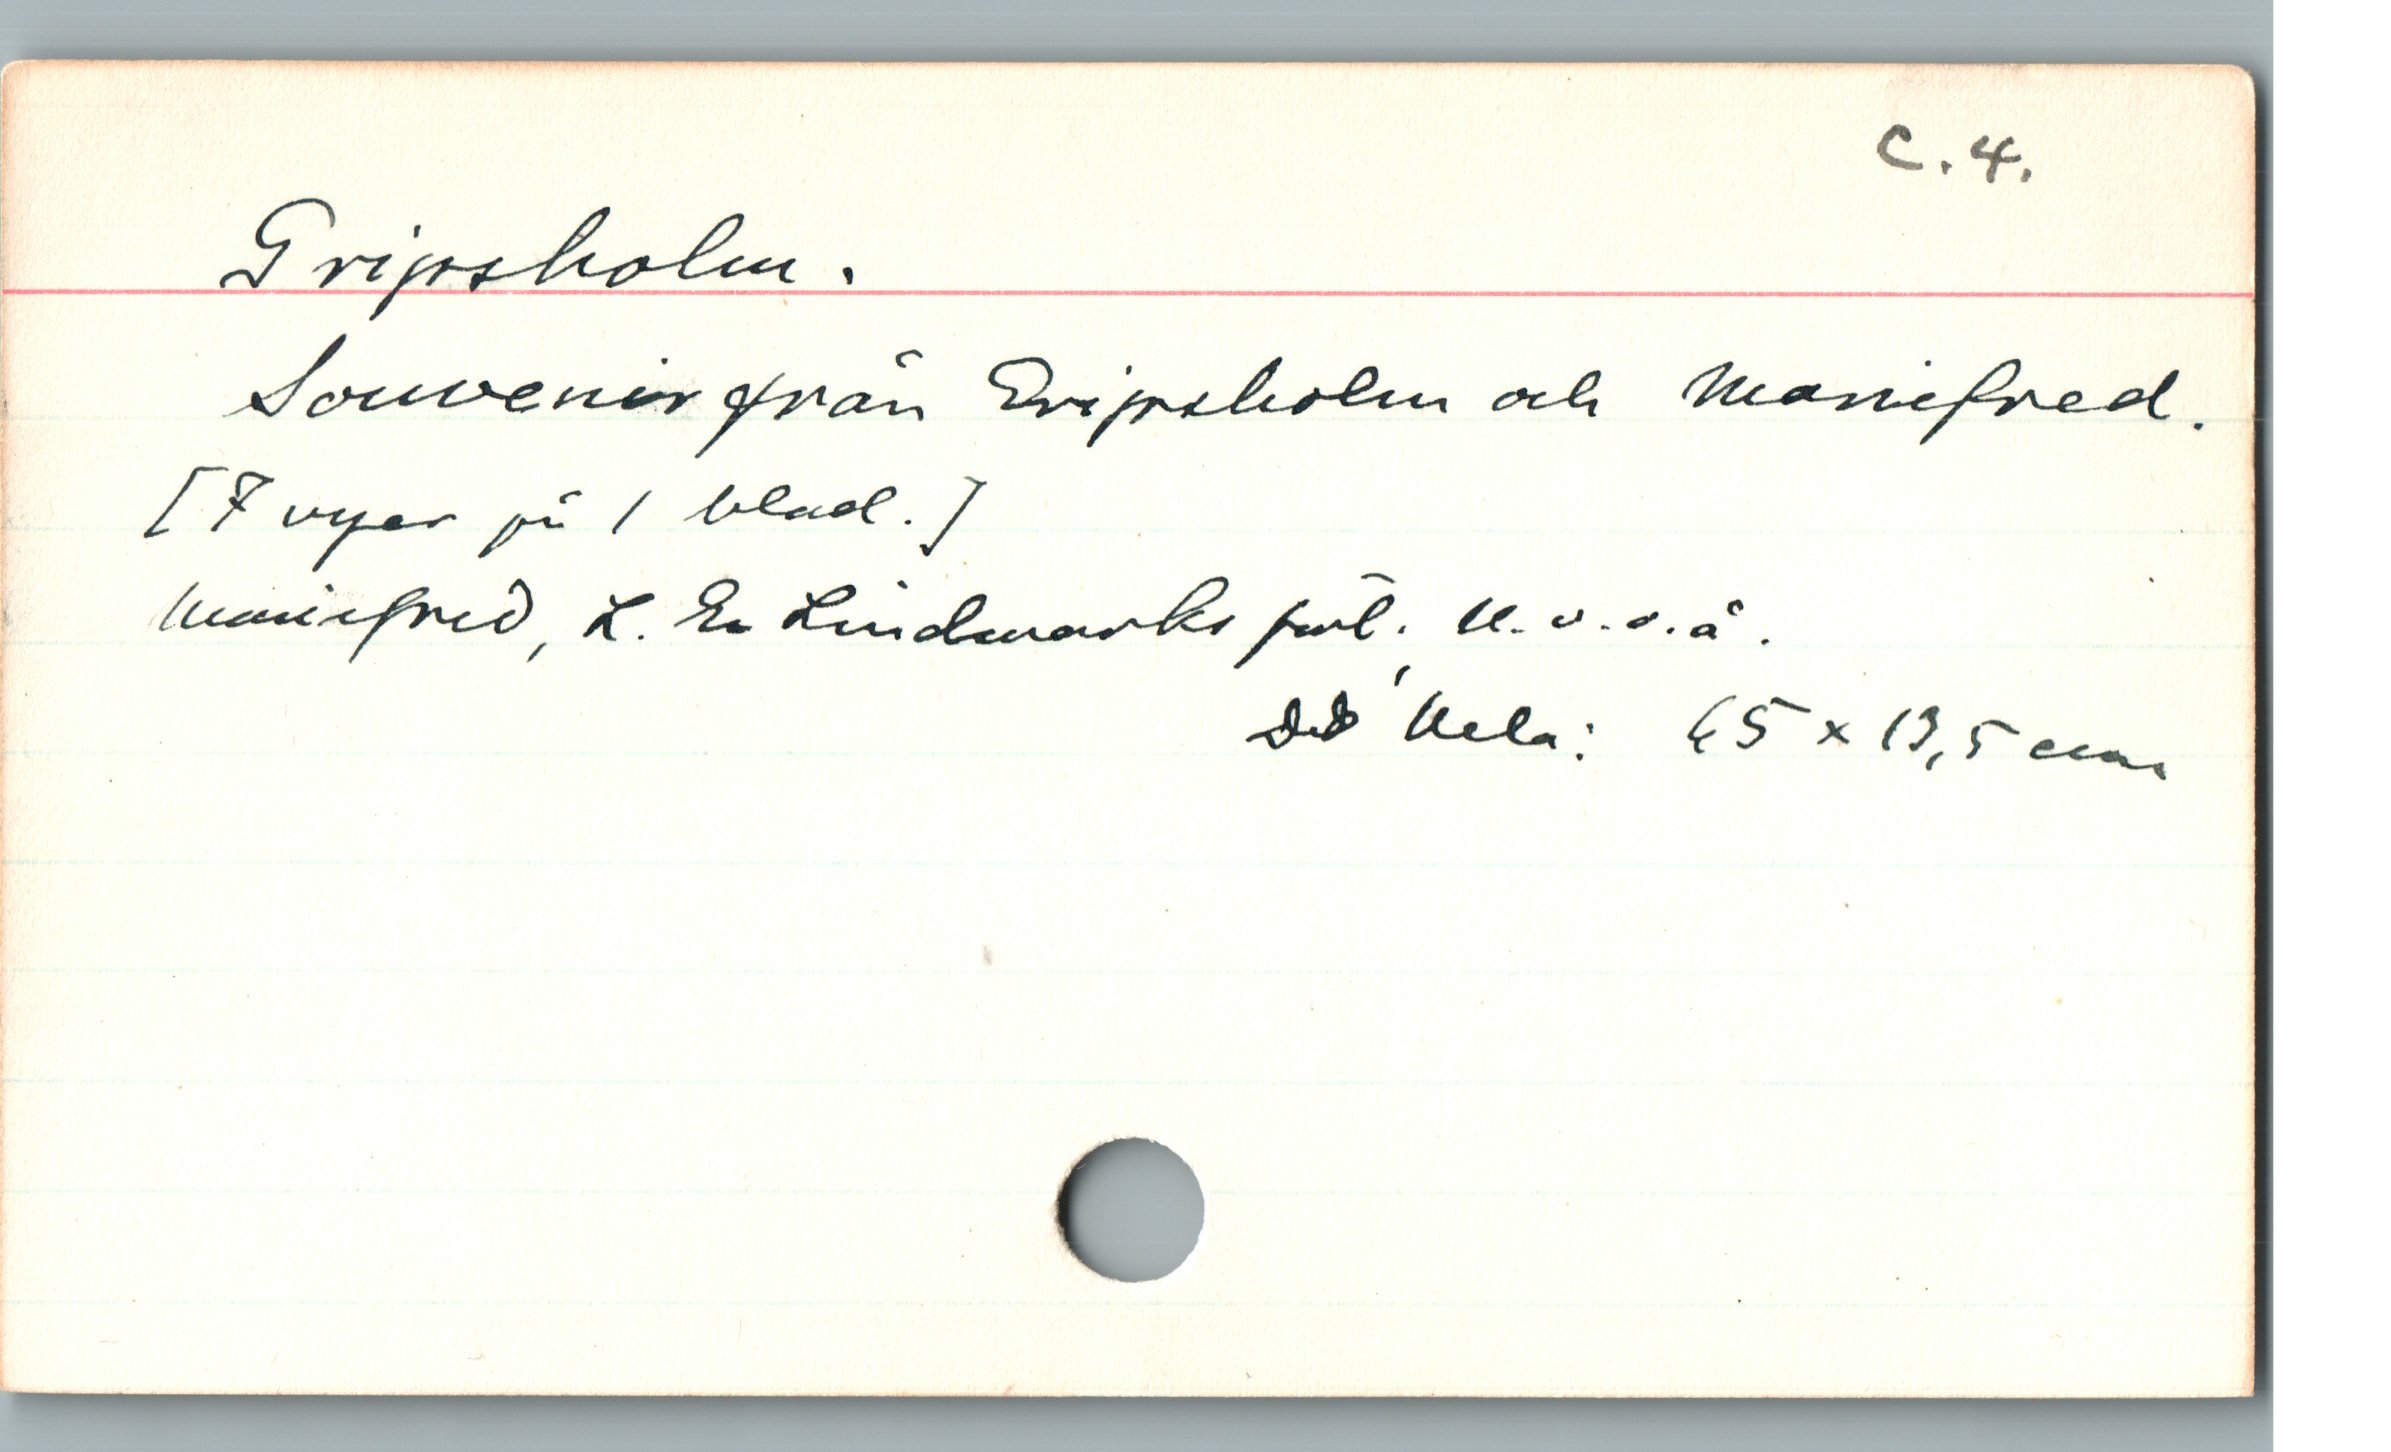 C. 4.
Gripsholm.
Souvenir från Gripsholm och Mariefred.
[7 vyer på 1 blad.]
Mariefred, L. E. Lindmarks förl. U. o. o. å.
Det hela: 45 x 13,5 cm